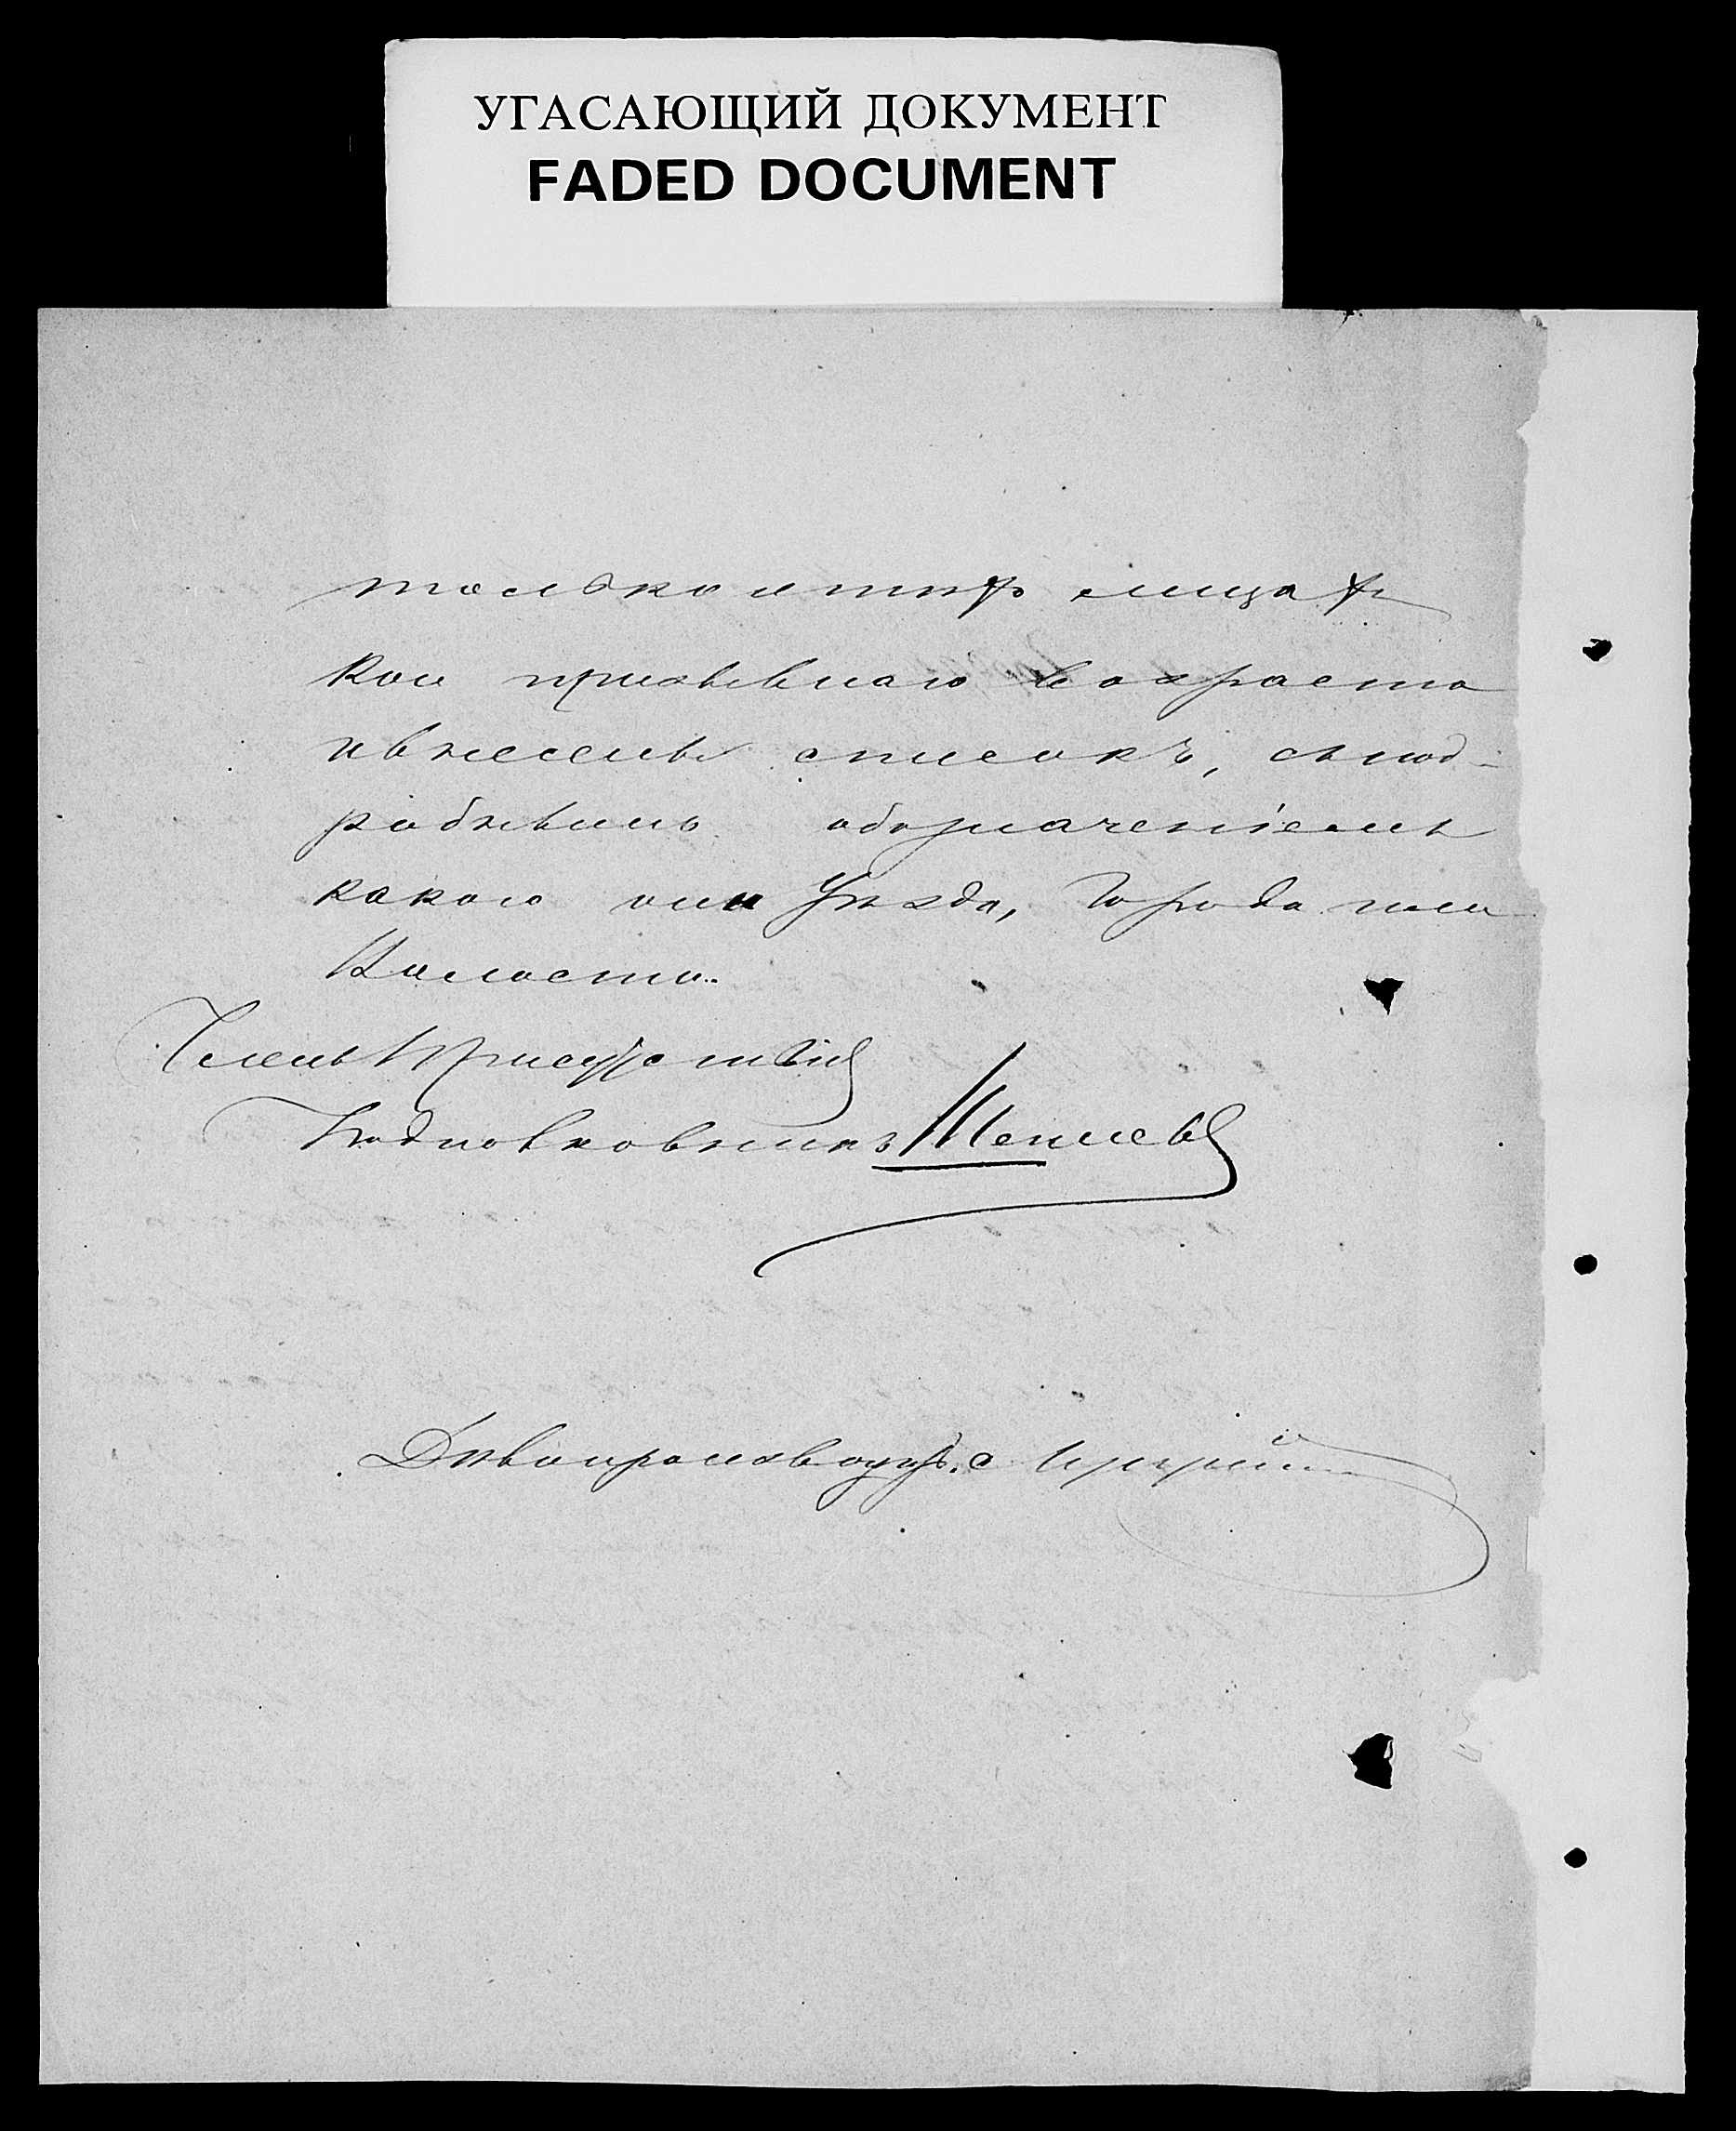 УГАСАЮЩИЙ ДОКУМЕНТ
FADED DOCUMENT
только о тѣхъ лицахъ
кои призывнаго возраста
и внесены списокъ, съ под-
робнымъ обозначеніемъ
какого они Уѣзда, Города или
Волости.
Членъ Присутствія
Подполковникъ
Дѣлопроизводит.